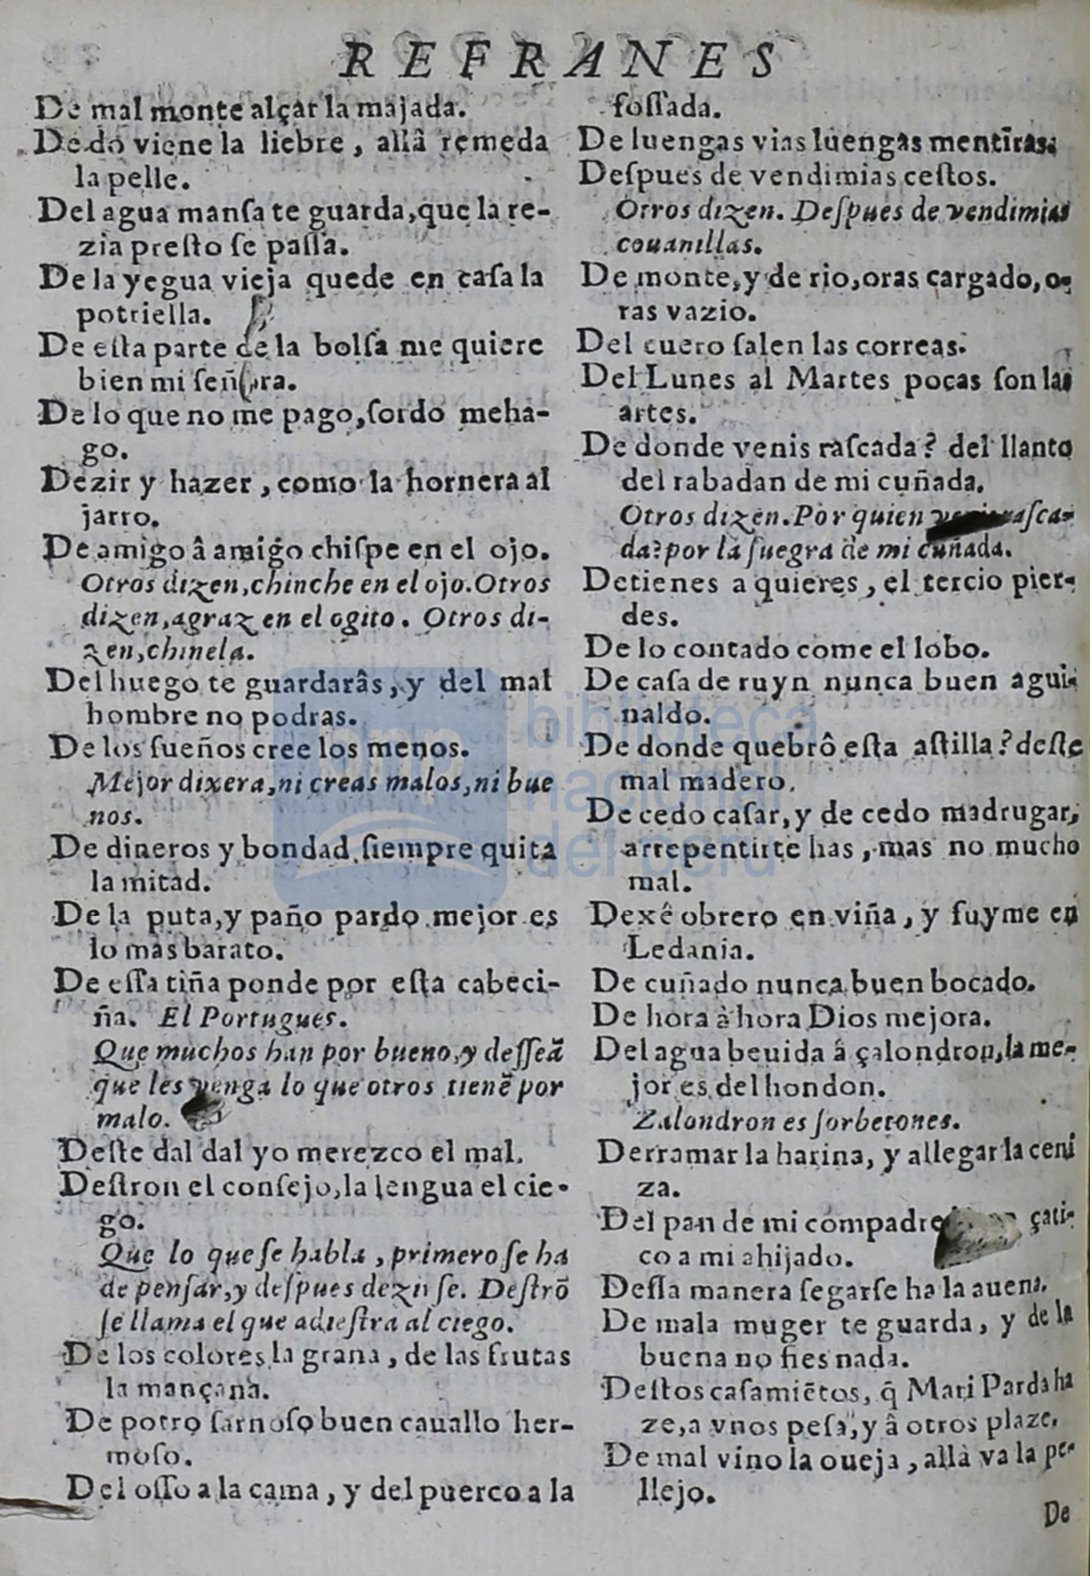 REFRANES
De mal monte alçar la majada.
De dó viene la liebre, allâ remeda
la pelle.
Del agua manſa te guarda, que la re-
zia preſto ſe paſſa.
De la yegua vieja quede en caſa la
potriella.
De eſta parte de la bolſa me quiere
bien mi ſeñora.
De lo que no me pago, ſordo meha-
go.
Dezir y hazer, como la hornera al
jarro.
De amigo â amigo chiſpe en el ojo.
Otros dizen, chinche en el ojo. Otros
dizen, agraz en el ogito. Otros di-
zen, chinela.
Del huego te guardarâs, y del mal
hombre no podras.
De los ſueños cree los menos.
Mejor dixera, ni creas malos, ni bue
nos.
De dineros y bondad, ſiempre quita
la mitad.
De la puta, y paño pardo mejor es
lo mas barato.
De eſſa tiña ponde por eſta cabeci-
ña. El Portugues.
Que muchos han por bueno, y deſſeã
que les venga lo que otros tienẽ por
malo.
Deſte dal dal yo merezco el mal.
Deſtron el conſejo, la lengua el cie-
go.
Que lo que ſe habla, primero ſe ha
de penſar, y deſpues dezirſe. Deſtrõ
ſe llama el que adieſtra al ciego.
De los colores la grana, de las frutas
la mançana.
De potro ſarnoſo buen cauallo her-
moſo.
Del oſſo a la cama, y del puerco a la
foſſada.
De luengas vias luengas mentiras.
Deſpues de vendimias ceſtos.
Otros dizen. Deſpues de vendimias
couanillas.
De monte, y de rio, oras cargado, o-
ras vazio.
Del cuero ſalen las correas.
Del Lunes al Martes pocas ſon las
artes.
De donde venis raſcada? del llanto
del rabadan de mi cuñada.
Otros dizen. Por quien raſca-
da? por la ſuegra de mi cuñada.
Detienes a quieres, el tercio pier-
des.
De lo contado come el lobo.
De caſa de ruyn nunca buen agui-
naldo.
De donde quebrô eſta aſtilla? deſte
mal madero.
De cedo caſar, y de cedo madrugar,
arrepentirte has, mas no mucho
mal.
Dexê obrero en viña, y fuyme en
Ledania.
De cuñado nunca buen bocado.
De hora à hora Dios mejora.
Del agua beuida â çalondron, la me-
jor es del hondon.
Zalondron es ſorbetones.
Derramar la harina, y allegar la ceni
za.
Del pan de mi compadre çati-
co a mi ahijado.
Deſſa manera ſegarſe ha la auena.
De mala muger te guarda, y de la
buena no fies nada.
Deſtos caſamiẽtos, q̃ Mari Parda ha
ze, a vnos peſa, y â otros plaze.
De mal vino la oueja, allà va la pe-
llejo.
De
biblioteca
nacional
del perú
bnp